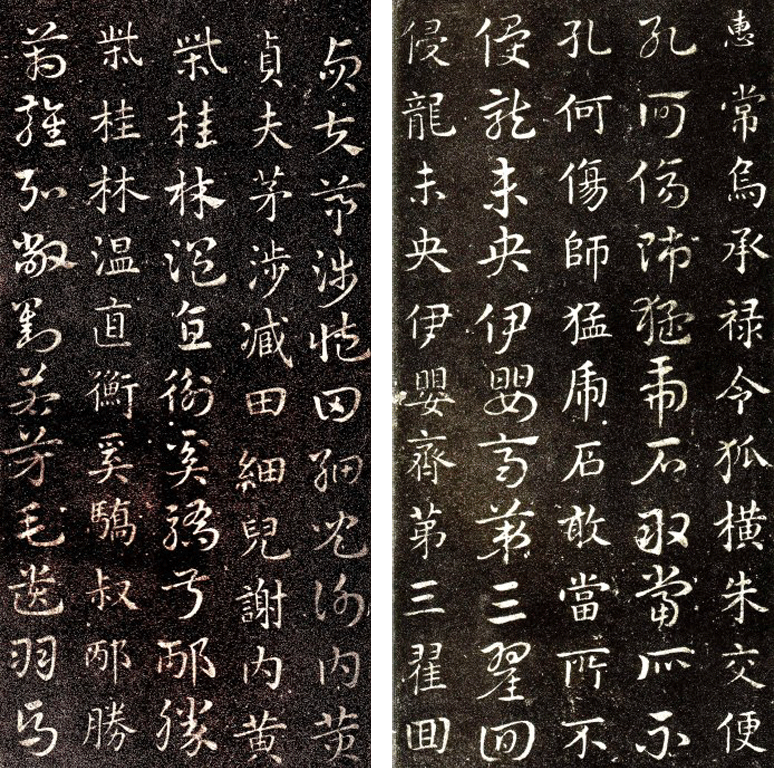 惠常烏承禄令狐橫朱交便
孔何傷師猛虎石敢當所不
孔何傷師猛虎石敢當所不
侵龍未央伊嬰齊苐三翟囬
侵龍未央伊嬰齊苐三翟囬
貞夫茅涉臧田細兒謝内黄
貞夫茅涉臧田細兒謝内黄
柴桂林温直衡奚驕叔邴勝
柴桂林温直衡奚驕叔邴勝
雍弘敞劉若芳毛遺羽馬